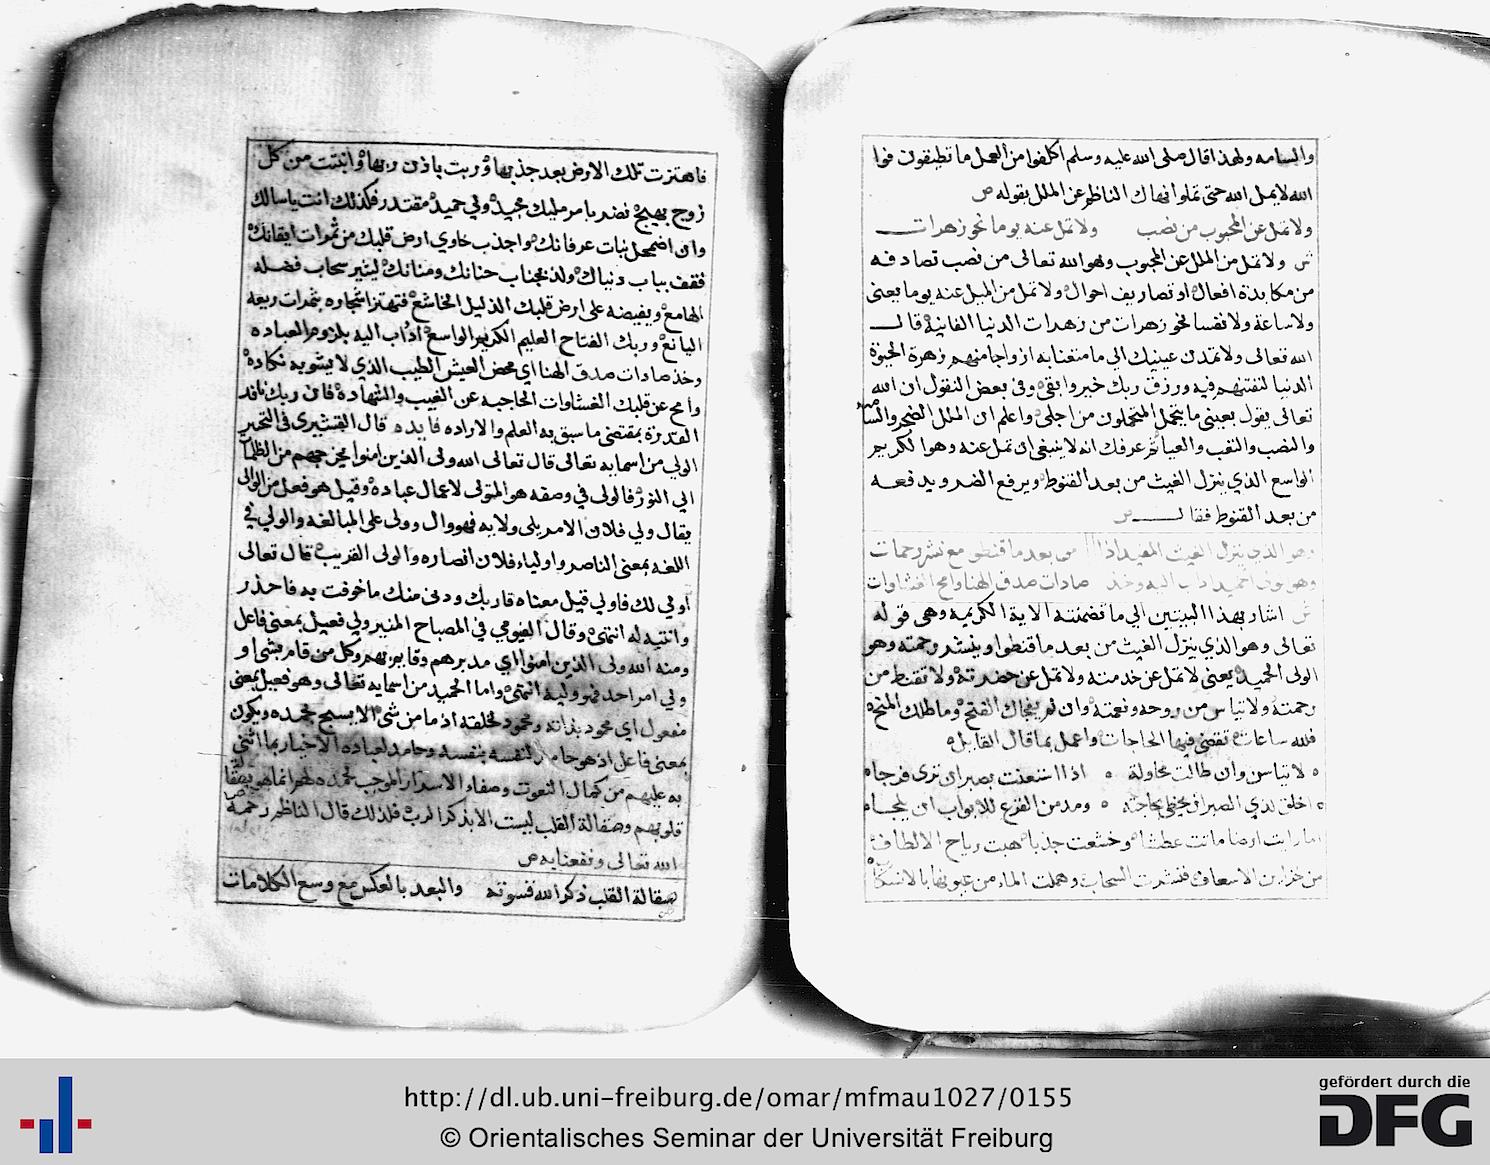 والسامه ولهذا قال صلى الله عليه وسلم اكلفوا من العمل ما تطيقون فوا
الله لا يمل الله حتى تملوا نهاك الناظم عن الملل بقوله ص
ولا تمل عن المحبوب من نصب ولا تمل عنه يوما نحو زهرات
ش ولا تمل من الملل عن المحبوب وهو الله تعالى من نصب تصادفه
من مكابدة افعال او تصاريف احوال ولا تمل من الميل عنه يوما يعنى
ولا ساعة ولا نفسا نحو زهرات من زهرات الدنيا الفانية قال
الله تعالى ولا تمدن عينيك الى ما متعنا به ازواجا منهم زهرة الحيوة
الدنيا لنفتنهم فيه ورزق ربك خير وابقى وفى بعض النقول ان الله
تعالى يقول بعينى ما يتحمل المتحملون من اجلى واعلم ان الملل الضجر والسامه
والنصب والتعب والعيا عرفك انه لا ينبغى ان تمل عنه وهو الكريم
الواسع الذي ينزل الغيث من بعد القنوط ويرفع الضر ويدفعه
من بعد القنوط فقال ص
وهو الذي ينزل الغيث المغيث اذا من بعد ما قنطو مع نشر رحمات
وهو الولى الحميد اداب اليه وخذ صادات صدق الهنا وامح الغشاوات
ش اشار بهذا البيتين الى ما تضمنته الاية الكريمه وهى قوله
تعالى وهو الذي ينزل الغيث من بعد ما قنطوا وينشر رحمته وهو
الولى الحميد يعنى لا تمل عن خدمته ولا تمل عن حضرته ولا تقنط من
رحمته ولا تياس من روحه ونعمته وان لم يفجاك الفتح وماطلك المنح
فلله ساعات تقضى فيها الحاجات واعمل بما قال القايل
لا تياسن وان طالت محاولة اذا استعنت بصبر ان ترى فرجا
اخلق لذي الصبر ان يحظى بحاجته ومدمن القرع للابواب ان يلجا
اما رايت ارضا ماتت عطشا وخشعت جذبا هبت رياح الالطاف
من خزاين الاسعاف فنشرت السحاب وهملت الماء من عيونها بالانسكاب
فاهتزت تلك الارض بعد جذبها وربت باذن ربها وانبتت من كل
زوج بهيج نضر بامر مليك مجيد وولي حميد مقتدر فكذلك انت يا سالك
وان اضمحل نبات عرفانك واجذب خاوي ارض قلبك من ثمرات ايقانك
فقف بباب دنياك ولذ بجناب حنانك ومنانك لينير سحاب فضله
الهامع ويفيضه على ارض قلبك الذليل الخاشع فتهتز اشجاره بثمرات ربعه
اليانع وربك الفتاح العليم الكريم الواسع اداب اليه بلزوم العباده
وخذ صادات صدق الهنا اي محض العيش الطيب الذي لا يشوبه نكاده
وامح عن قلبك الغشاوات الحاجبه عن الغيب والشهادة فان ربك نافذ
القدرة بمقتضى ما سبق به العلم والاراده فايده قال القشيرى فى التحبير
الولي من اسمايه تعالى قال تعالى الله ولى الذين امنوا يخرجهم من الظلمات
الي النور فالولى في وصفه هو المتولى لاعمال عباده وقيل هو فعل من الوالى
يقال ولي فلان الامر يلى ولايه فهو وال وولى على المبالغه والولي في
اللغه بمعنى الناصر واولياء فلان انصاره والولى القريب قال تعالى
اولي لك فاولي قيل معناه قاربك ودنى منك ما خوفت به فاحذر
وانتبه له انتهى وقال الفيومي في المصباح المنير ولي فعيل بمعنى فاعل
ومنه الله ولى الذين امنوا اي مدبرهم وقايم بهم وكل من قام بشى او
ولي امر احد فهو وليه انتهى واما الحميد من اسمايه تعالى وهو فعيل بمعنى
مفعول اي محمود بذاته ومحمود لخلقه اذ ما من شى الا يسبح بحمده ويكون
بمعنى فاعل اذ هو حامد لنفسه بنفسه وحامد لعباده الاخيار بما اثنى
به عليهم من كمال النعوت وصفاء الاسرار الموجب لحمده
قلوبهم وصقالة القلب ليست الا بذكر الرب فلذلك قال الناظم رحمه
الله تعالى ونفعنا به ص
صقالة القلب ذكر الله قسوته والبعد بالعكس مع وسع الكلامات
http://dl.ub.uni-freiburg.de/omar/mfmau1027/0155
© Orientalisches Seminar der Universität Freiburg
gefördert durch die
DFG